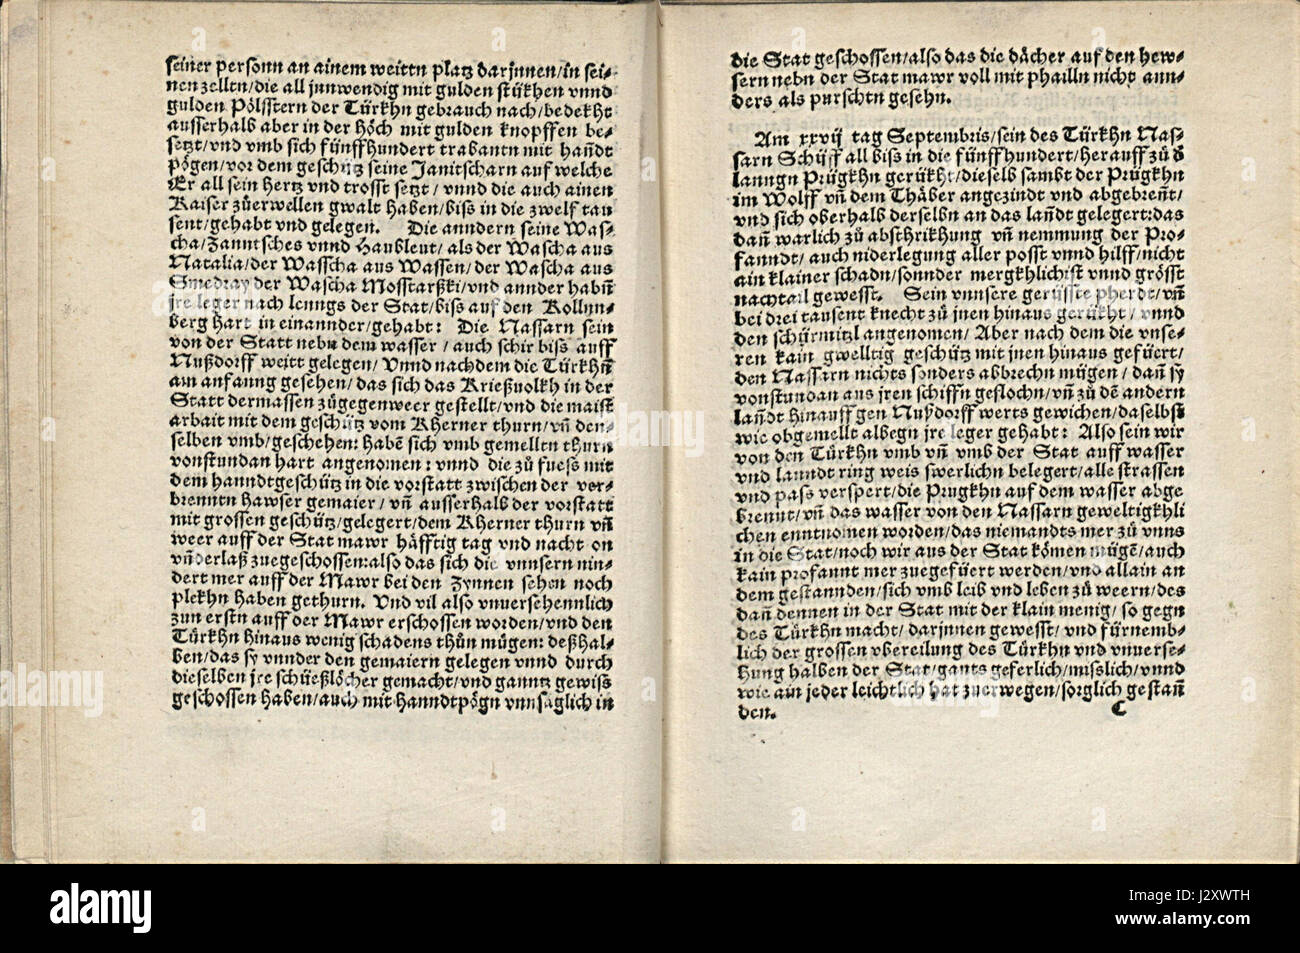 seiner personn an ainem weittn platz darjnnen/in sei⸗
nen zelltn/die all jnnwendig mit gulden stükhen vnnd
gulden Pölsstern der Türkhn gebrauch nach/bedekht
ausserhalb aber in der höch mit gulden knopffen be⸗
setzt/vnd vmb sich fünffhundert trabantn mit hañdt
pögen/vor dem geschütz seine Janitscharn auf welche
Er all sein hertz vnd trosst setzt/vnnd die auch ainen
Kaiser züerwellen gwalt haben/biss in die zwelf tau
sent/gehabt vnd gelegen. Die anndern seine Was⸗
cha/Zanntsches vnnd Haubleut/als der Wascha aus
Natalia/der Wasscha aus Wassen/der Wascha aus
Smedray der Wascha Mosstarßki/vnd annder habñ
jre leger nach lenngs der Stat/biss auf den Kollnn⸗
berg hart in einannder/gehabt: Die Nassarn sein
von der Statt nebn dem wasser/auch schir biss auff
Nußdorff weitt gelegen/Vnnd nachdem die Türkhñ
am anfanng gesehen/das sich das Krießuolkh in der
Statt dermassen zügegenweer gestellt/vnd die maist
arbait mit dem geschütz vom Kherner thurn/vñ den⸗
selben vmb/geschehen: habẽ sich vmb gemelltn thurn
vonstundan hart angenomen: vnnd die zü fuess mit
dem hanndtgeschütz in die vorstatt zwischen der ver⸗
brenntn hawser gemaier/vñ ausserhalb der vorstatt
mit grossen geschütz/gelegert/dem Kherner thurn vñ
weer auff der Stat mawr häfftig tag vnd nacht on
vñderlaß zuegeschossen:also das sich die vnnsern nin⸗
dert mer auff der Mawr bei den Zynnen sehen noch
plekhn haben gethurn. Vnd vil also vnuersehennlich
zun erstn auff der Mawr erschossen worden/vnd den
Türkhn hinaus wenig schadens thün mügen: deßhal⸗
ben/das sy vnnder den gemaiern gelegen vnnd durch
dieselben jre schüeßlöcher gemacht/vnd ganntz gewiss
geschossen haben/auch mit hanndtpögn vnnsäglich in
die Stat geschossen/also das die dächer auf den hew⸗
sern nebn der Stat mawr voll mit phailln nicht ann⸗
ders als purschtn gesehn.
Am xxvij tag Septembris/sein des Türkhn Nas⸗
sarn Schüff all biss in die fünffhundert/herauff zü d
lanngn Prügkhn gerükht/dieselb sambt der Prügkhn
im Wolff vñ dem Thäber angezindt vnd abgebreñt/
vnd sich oberhalb derselbn an das lañdt gelegert:das
dañ warlich zü abschrikhung vñ nemmung der Pro⸗
fanndt/auch niderlegung aller posst vnnd hilff/nicht
ain klainer schadn/sonnder mergkhlichist vnnd grösst
nachtail gewesst. Sein vnnsere gerüsste pherdt/vñ
bei drei tausent knecht zü jnen hinaus gerükht/vnnd
den schürmitzl angenomen/Aber nach dem die vnse⸗
ren kain gwelltig geschütz mit jnen hinaus gefüert/
den Nassarn nichts sonders abbrechn mügen/dañ sy
vonstundan aus jren schiffn geflochn/vñ zü dẽ andern
lañdt hinauff gen Nußdorff werts gewichen/daselbst
wie obgemellt albegn jre leger gehabt: Also sein wir
von den Türkhn vmb vñ vmb der Stat auff wasser
vnd lanndt ring weis swerlichn belegert/alle strassen
vnd pass verspert/die Prugkhn auf dem wasser abge
brennt/vñ das wasser von den Nassarn geweltigkhli
chen enntnomen worden/das niemandts mer zü vnns
in die Stat/noch wir aus der Stat kömen mügẽ/auch
kain profannt mer zuegefüert werden/vnd allain an
dem gestannden/sich vmb leib vnd leben zü weern/des
dañ dennen in der Stat mit der klain menig/so gegn
des Türkhn macht/darjnnen gewesst/vnd fürnemb⸗
lich der grossen vbereilung des Türkhn vnd vnuerse⸗
hung halben der Stat/gants geferlich/misslich/vnnd
wie ain jeder leichtlich hat zuerwegen/sorglich gestañ
den. C
alamy
Image ID: J2XWTH
www.alamy.com